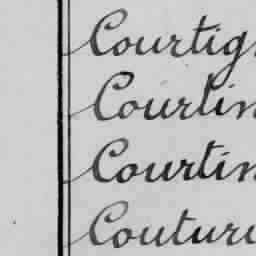 Courtig
Courtin
Courtin
Coutur